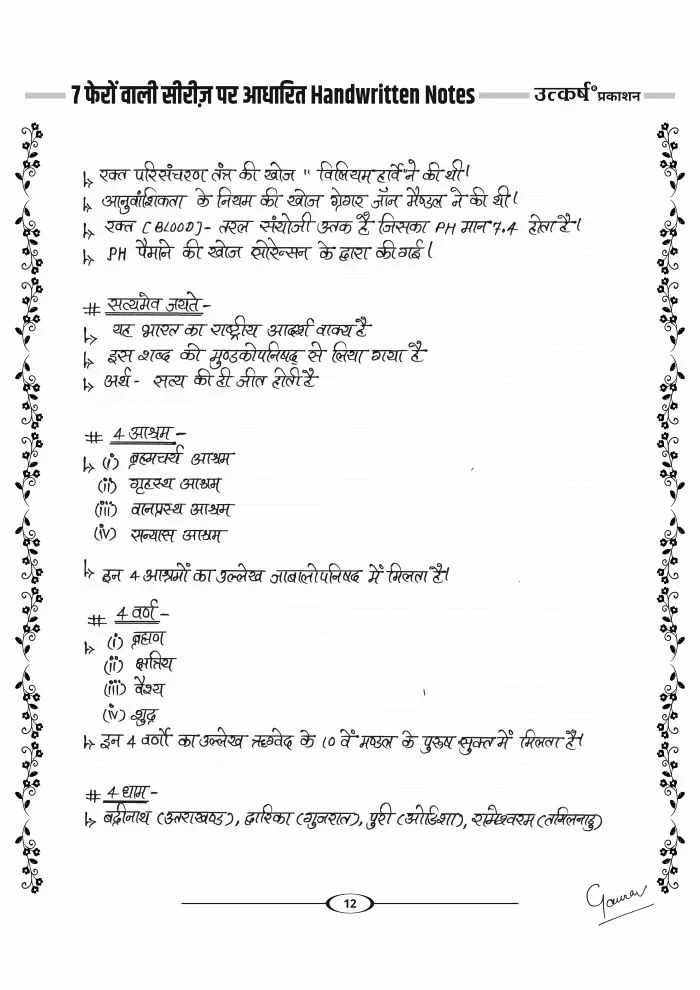 7 फेरों वाली सीरीज़ पर आधारित Handwritten Notes
उत्कर्ष प्रकाशन
↳ रक्त परिसंचरण तंत्र की खोज "विलियम हार्वे ने की थी।
↳ आनुवांशिकता के नियम की खोज ग्रेगर जॉन मैण्डल ने की थी।
↳ रक्त [BLOOD]- तरल संयोजी उतक है जिसका PH मान 7.4 होता है।
↳ PH पैमाने की खोज सोरेन्सन के द्वारा की गई।
# सत्यमेव जयते -
↳ यह भारत का राष्ट्रीय आदर्श वाक्य है
↳ इस शब्द को मुण्डकोपनिषद से लिया गया है
↳ अर्थ - सत्य की ही जीत होती है
# 4 आश्रम -
↳ (i) ब्रह्मचर्य आश्रम
(ii) गृहस्थ आश्रम
(iii) वानप्रस्थ आश्रम
(iv) सन्यास आश्रम
↳ इन 4 आश्रमों का उल्लेख जाबालोपनिषद में मिलता है।
# 4 वर्ण -
↳ (i) ब्रह्मण
(ii) क्षत्रिय
(iii) वैश्य
(iv) शुद्र
↳ इन 4 वर्णों का उल्लेख ऋग्वेद के 10 वें मण्डल के पुरूष सुक्त में मिलता है।
# 4 धाम -
↳ बद्रीनाथ (उत्तराखण्ड), द्वारिका (गुजरात), पुरी (ओडिशा), रामेश्वरम (तमिलनाडु)
12
Gaurav